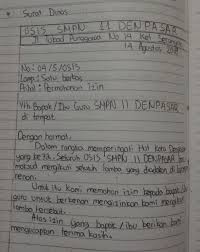 Surat Dinas
OSIS SMPN 11 DENPASAR
Jl Tukad Punggawa No 14 Kel Serangan
14 Agustus
No: 04/5/OSIS
Lamp: Satu berkas
Perihal: Permohonan izin
Yth Bapak/Ibu Guru SMPN 11 DENPASAR
di tempat
Dengan hormat,
Dalam rangka memperingati Hut kota Denpasar
yang ke Seluruh OSIS SMPN 11 DENPASAR
maksud mengikuti seluruh lomba yang diadakan di
renon.
Untuk itu kami memohon izin kepada bapak/ibu
guru untuk berkenan mengizinkan kami mengikuti
lomba tersebut.
Atas izin yang bapak/ibu berikan kami
mengucapkan terima kasih.